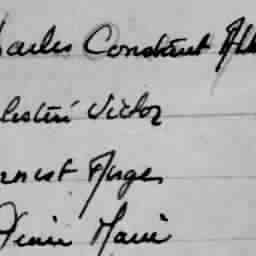 harles Constant Al
lestin Victor
rnest Ange
Henri Marie